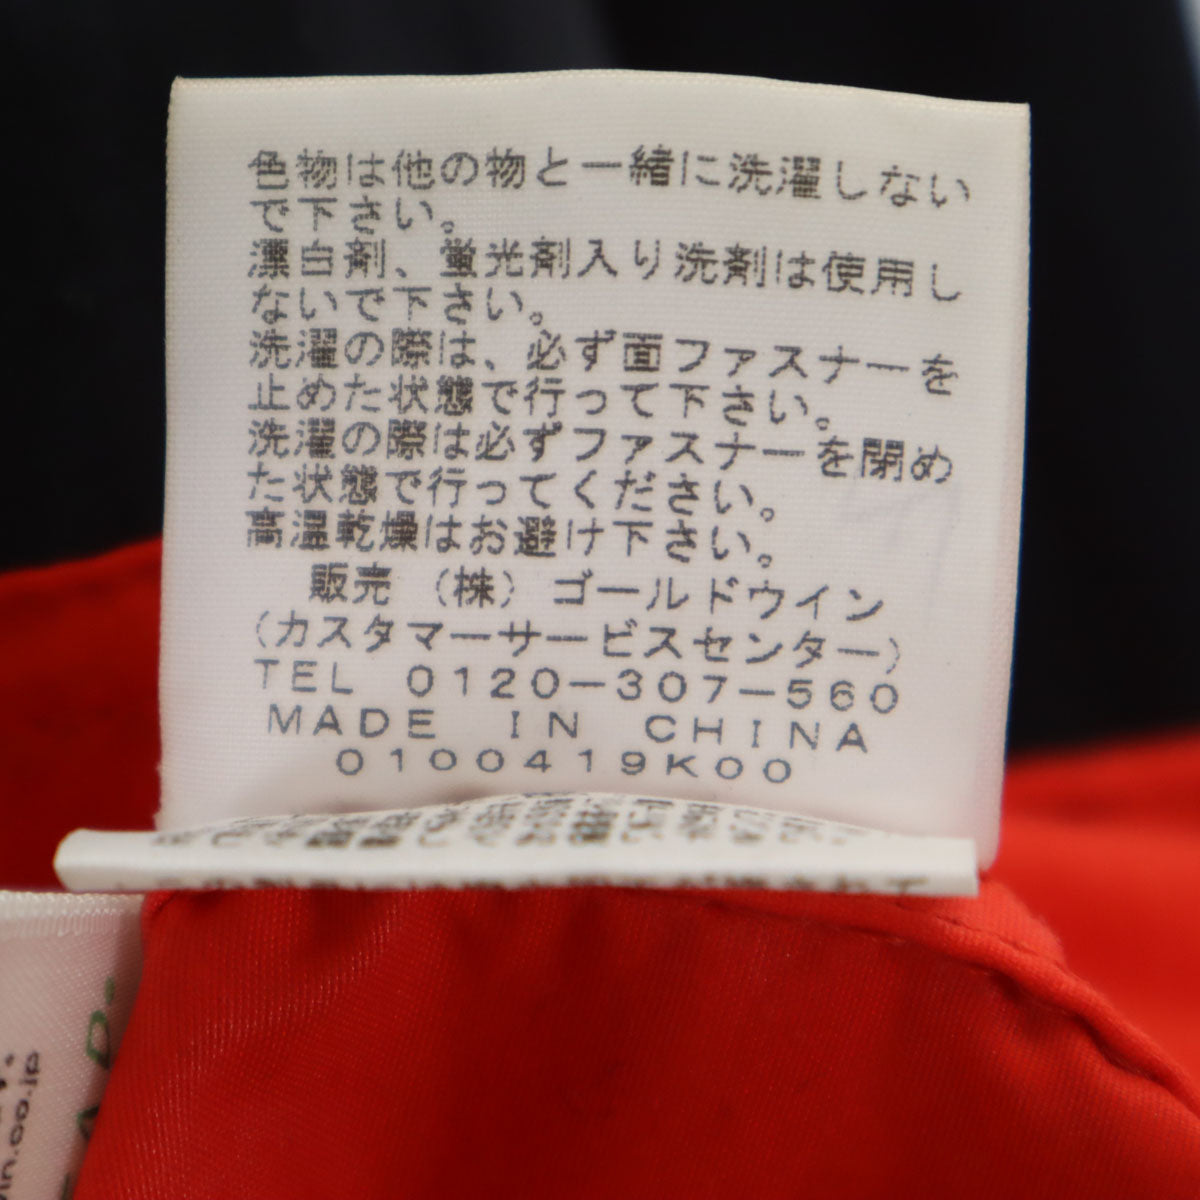 色物は他の物と一緒に洗濯しない
で下さい。
漂白剤、蛍光剤入り洗剤は使用し
ないで下さい。
洗濯の際は、必ず面ファスナーを
止めた状態で行って下さい。
洗濯の際は必ずファスナーを閉め
た状態で行ってください。
高温乾燥はお避け下さい。
販売 (株) ゴールドウイン
(カスタマーサービスセンター)
TEL 0120-307-560
MADE IN CHINA
0100419K00
in.co.jp